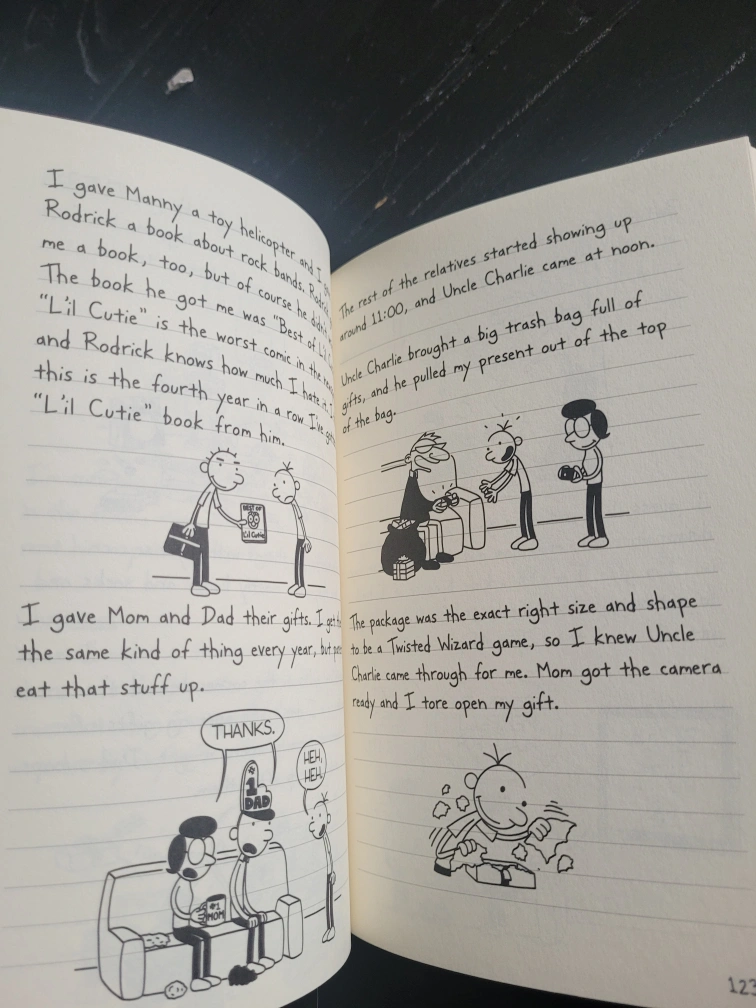 I gave Manny a toy helicopter and I
Rodrick a book about rock bands.
me a book, too, but of course he
The book he got me was "Best of
"L'il Cutie" is the worst comic in the
and Rodrick knows how much I hate it.
this is the fourth year in a row I've
"L'il Cutie" book from him.
BEST OF
L'il Cutie
I gave Mom and Dad their gifts. I get
the same kind of thing every year, but
eat that stuff up.
THANKS.
HEH,
HEH.
#
1
DAD
#1
MOM
The rest of the relatives started showing up
around 11:00, and Uncle Charlie came at noon.
Uncle Charlie brought a big trash bag full of
gifts, and he pulled my present out of the top
of the bag.
The package was the exact right size and shape
to be a Twisted Wizard game, so I knew Uncle
Charlie came through for me. Mom got the camera
ready and I tore open my gift.
123